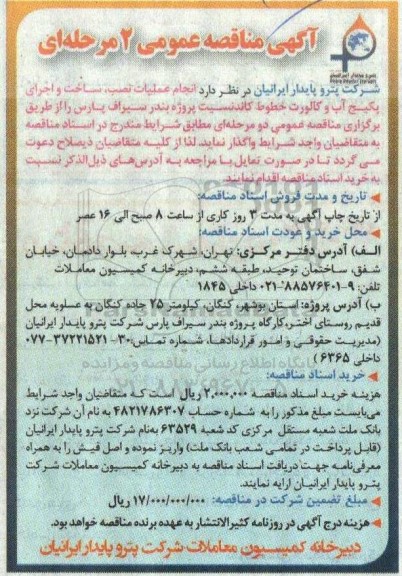 آگهی مناقصه عمومی ۲ مرحله‌ای
شرکت پترو پایدار ایرانیان در نظر دارد انجام عملیات نصب، ساخت و اجرای
پکیج آب و کالورت خطوط کاندنسیت پروژه بندر سیراف پارس را از طریق
برگزاری مناقصه عمومی دو مرحله‌ای مطابق شرایط مندرج در اسناد مناقصه
به متقاضیان واجد شرایط واگذار نماید. لذا از کلیه متقاضیان ذیصلاح دعوت
می گردد تا در صورت تمایل با مراجعه به آدرس‌های ذیل‌الذکر نسبت
به خرید اسناد مناقصه اقدام نمایند.
تاریخ و مدت فروش اسناد مناقصه:
از تاریخ چاپ آگهی به مدت ۳ روز کاری از ساعت ۸ صبح الی ۱۶ عصر
محل خرید و عودت اسناد مناقصه:
الف) آدرس دفتر مرکزی: تهران، شهرک غرب، بلوار دادمان، خیابان
شفق، ساختمان توحید، طبقه ششم، دبیرخانه کمیسیون معاملات
تلفن: ۹-۸۸۵۷۶۴۰۱-۰۲۱ داخلی ۱۸۴۵
ب) آدرس پروژه: استان بوشهر، کنگان، کیلومتر ۲۵ جاده کنگان به عسلویه محل
قدیم روستای اختر، کارگاه پروژه بندر سیراف پارس شرکت پترو پایدار ایرانیان
(مدیریت حقوقی و امور قراردادها، شماره تماس: ۳۰-۳۷۲۲۱۵۲۱-۰۷۷
داخلی ۶۳۶۵)
خرید اسناد مناقصه:
هزینه خرید اسناد مناقصه ۲,۰۰۰,۰۰۰ ریال است که متقاضیان واجد شرایط
می‌بایست مبلغ مذکور را به شماره حساب ۴۸۲۱۷۸۶۳۰۷ به نام آن شرکت نزد
بانک ملت شعبه مستقل مرکزی کد شعبه ۶۳۵۲۹ به‌نام شرکت پترو پایدار ایرانیان
(قابل پرداخت در تمامی شعب بانک ملت) واریز نموده و اصل فیش را به همراه
معرفی‌نامه جهت دریافت اسناد مناقصه به دبیرخانه کمیسیون معاملات شرکت
پترو پایدار ایرانیان ارایه نمایند.
مبلغ تضمین شرکت در مناقصه: ۱۷/۰۰۰/۰۰۰/۰۰۰ ریال
هزینه درج آگهی در روزنامه کثیرالانتشار به عهده برنده مناقصه خواهد بود.
دبیرخانه کمیسیون معاملات شرکت پترو پایدار ایرانیان